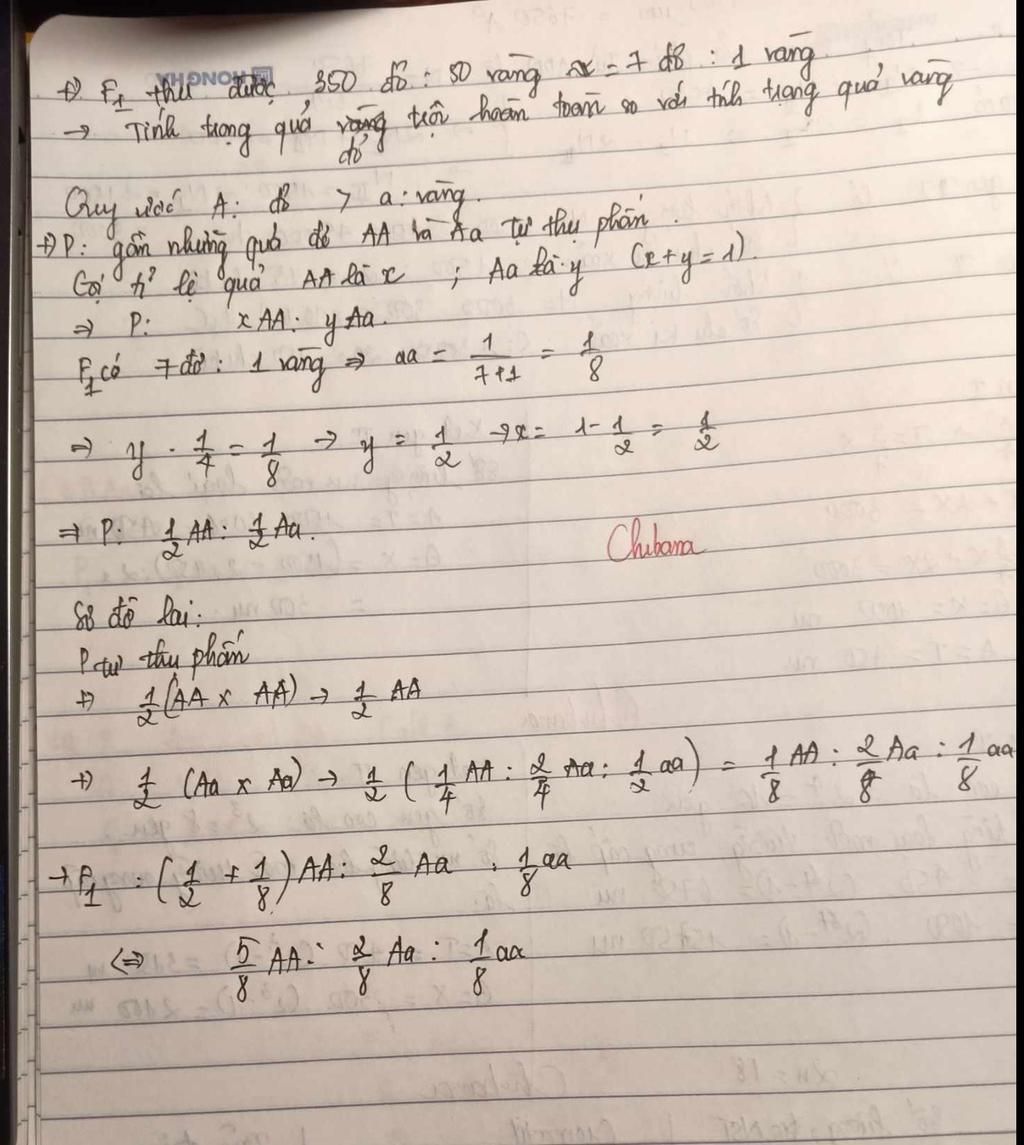 +) F1 thu được 350 đỏ : 50 vàng = 7 đỏ : 1 vàng
HONGHA
→ Tính trạng quả vàng trội hoàn toàn so với tính trạng quả vàng
đỏ
Quy ước A: đỏ > a: vàng.
+) P: gồm những quả đỏ AA và Aa tự thụ phấn.
Gọi tỉ lệ quả AA là x ; Aa là y (x+y=1).
⇒ P: x AA : y Aa.
F1 có 7 đỏ : 1 vàng ⇒ aa = 1/(7+1) = 1/8
⇒ y . 1/4 = 1/8 → y = 1/2 → x = 1 - 1/2 = 1/2
⇒ P: 1/2 AA : 1/2 Aa.
Chibana
Sơ đồ lai:
P tự thụ phấn
+) 1/2 (AA x AA) → 1/2 AA
+) 1/2 (Aa x Aa) → 1/2 (1/4 AA : 2/4 Aa : 1/2 aa) = 1/8 AA : 2/8 Aa : 1/8 aa
→ F1 : (1/2 + 1/8) AA : 2/8 Aa : 1/8 aa
⇔ 5/8 AA : 2/8 Aa : 1/8 aa